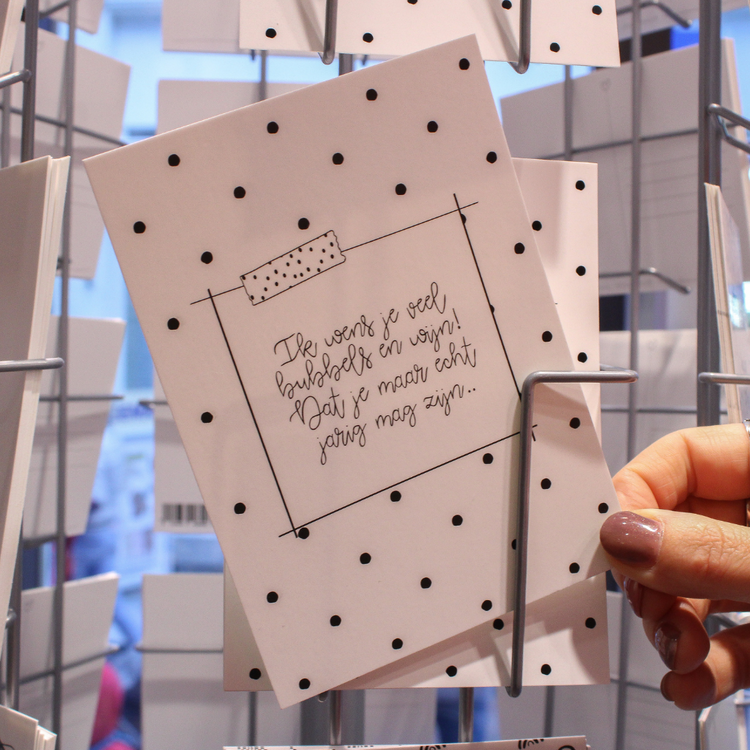 Ik wens je veel
bubbels en wijn!
Dat je maar echt
jarig mag zijn..